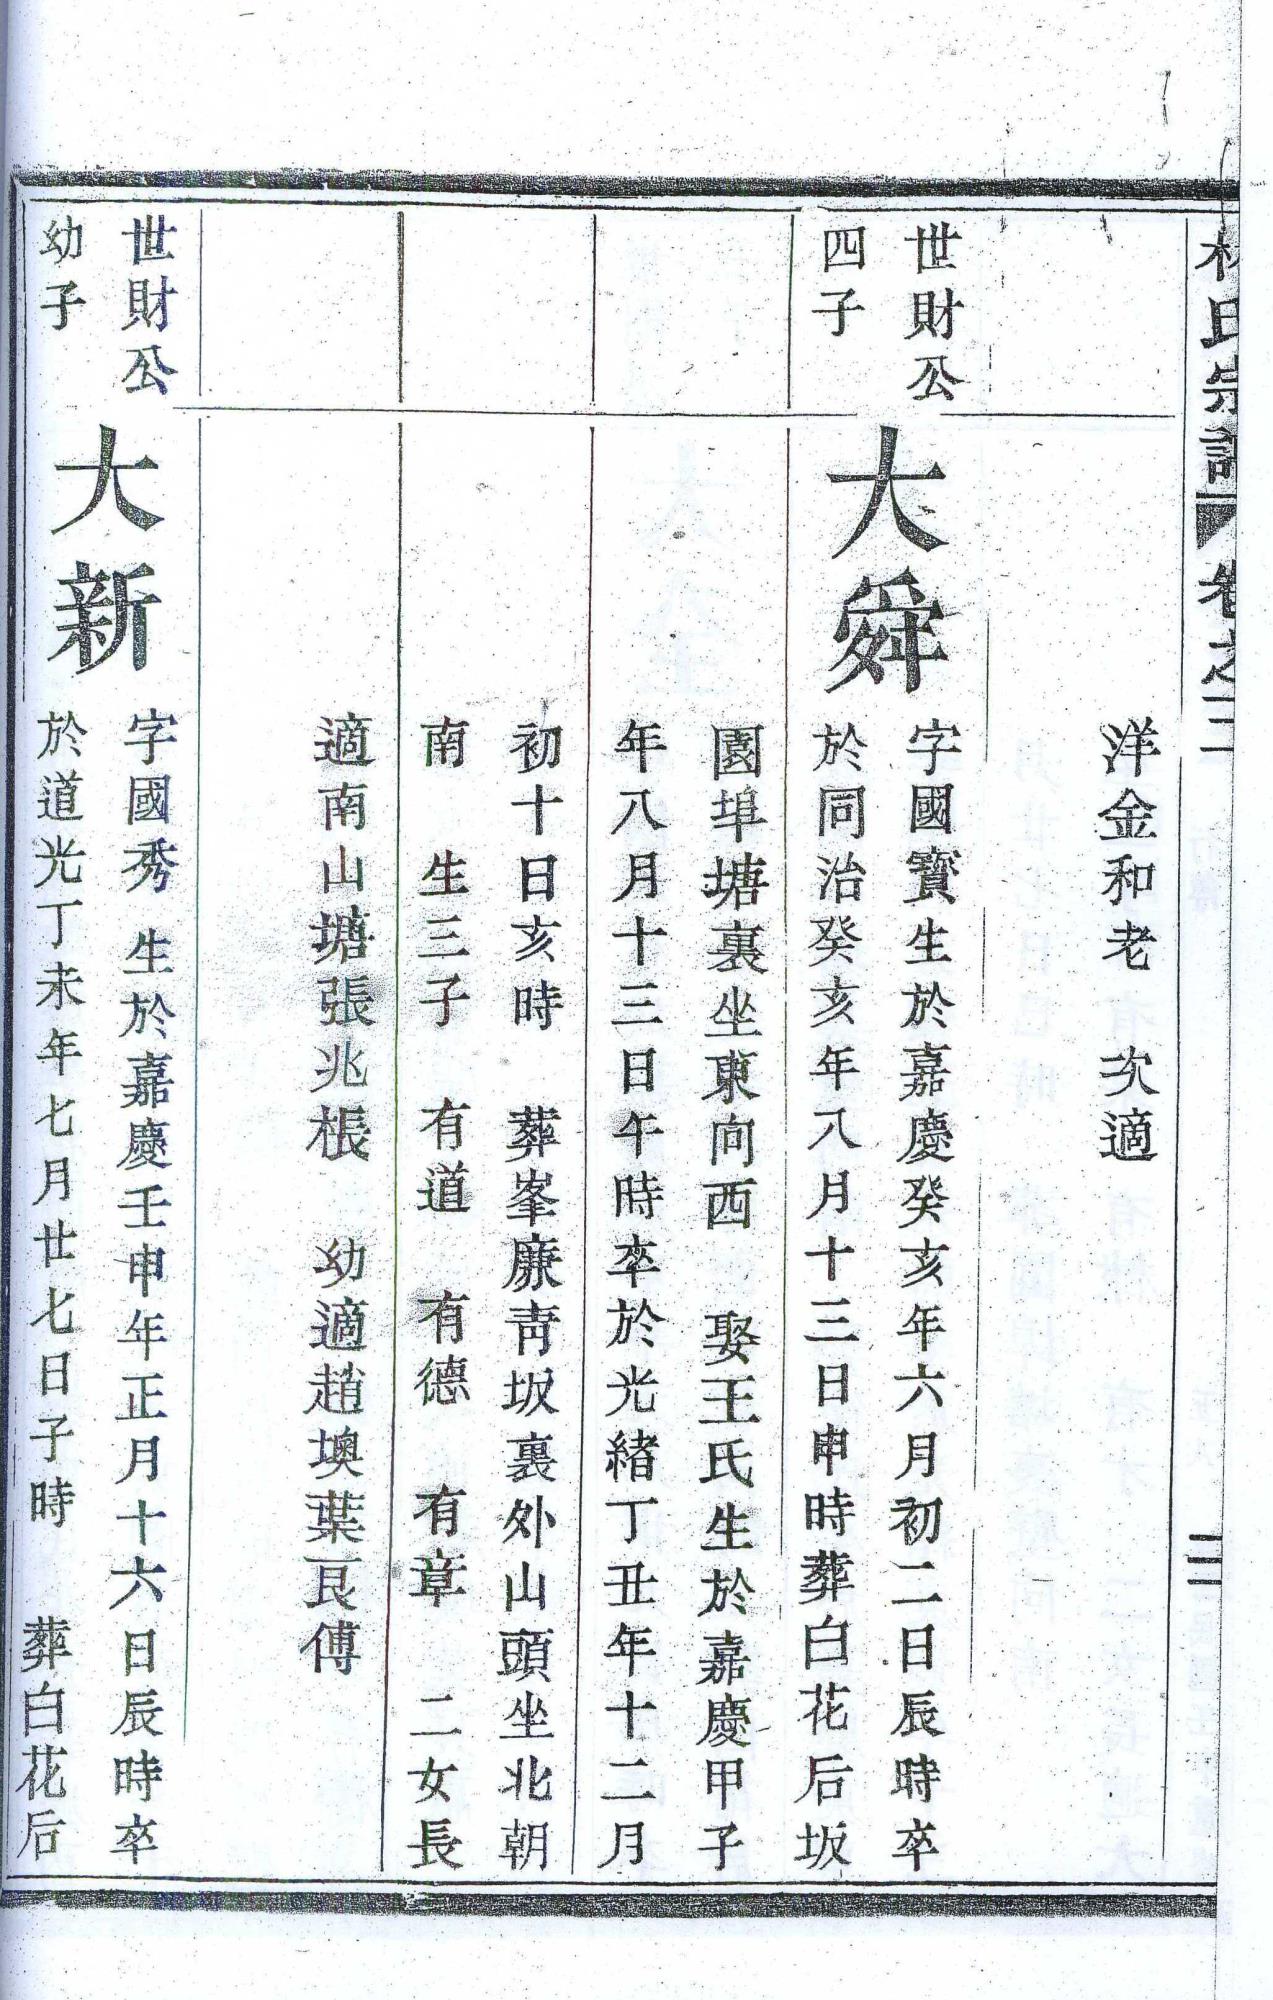 林氏宗譜 卷之二 二
洋金和老 次適
世財公
四子
大舜
字國寶生於嘉慶癸亥年六月初二日辰時卒
於同治癸亥年八月十三日申時葬白花后坂
園埠塘裏坐東向西 娶王氏生於嘉慶甲子
年八月十三日午時卒於光緒丁丑年十二月
初十日亥時 葬峯廉靑坂裏外山頭坐北朝
南 生三子 有道 有德 有章 二女長
適南山塘張兆棖 幼適趙墺葉艮傅
世財公
幼子
大新
字國秀 生於嘉慶壬申年正月十六日辰時卒
於道光丁未年七月廿七日子時 葬白花后